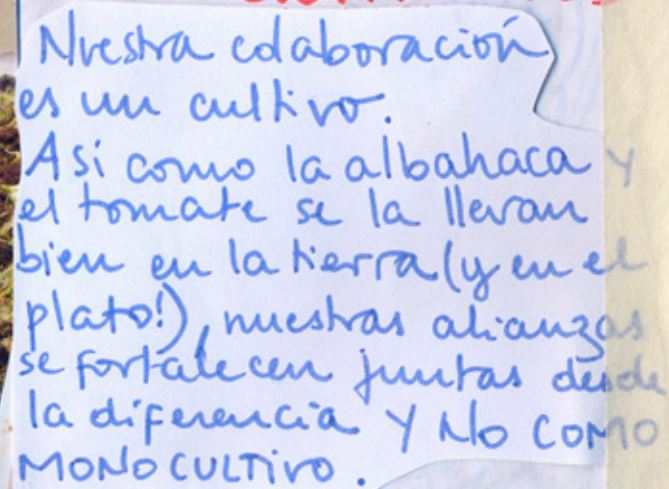 Nuestra colaboración
es un cultivo.
Así como la albahaca y
el tomate se la llevan
bien en la tierra (y en el
plato!), nuestras alianzas
se fortalecen juntas desde
la diferencia Y NO COMO
MONOCULTIVO.